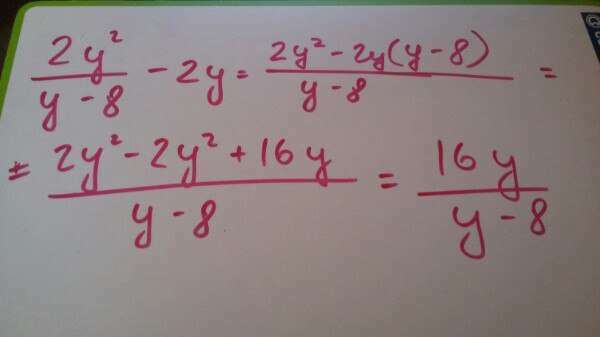 2y²/(y - 8) - 2y = (2y² - 2y(y - 8))/(y - 8) =
= (2y² - 2y² + 16y)/(y - 8) = 16y/(y - 8)